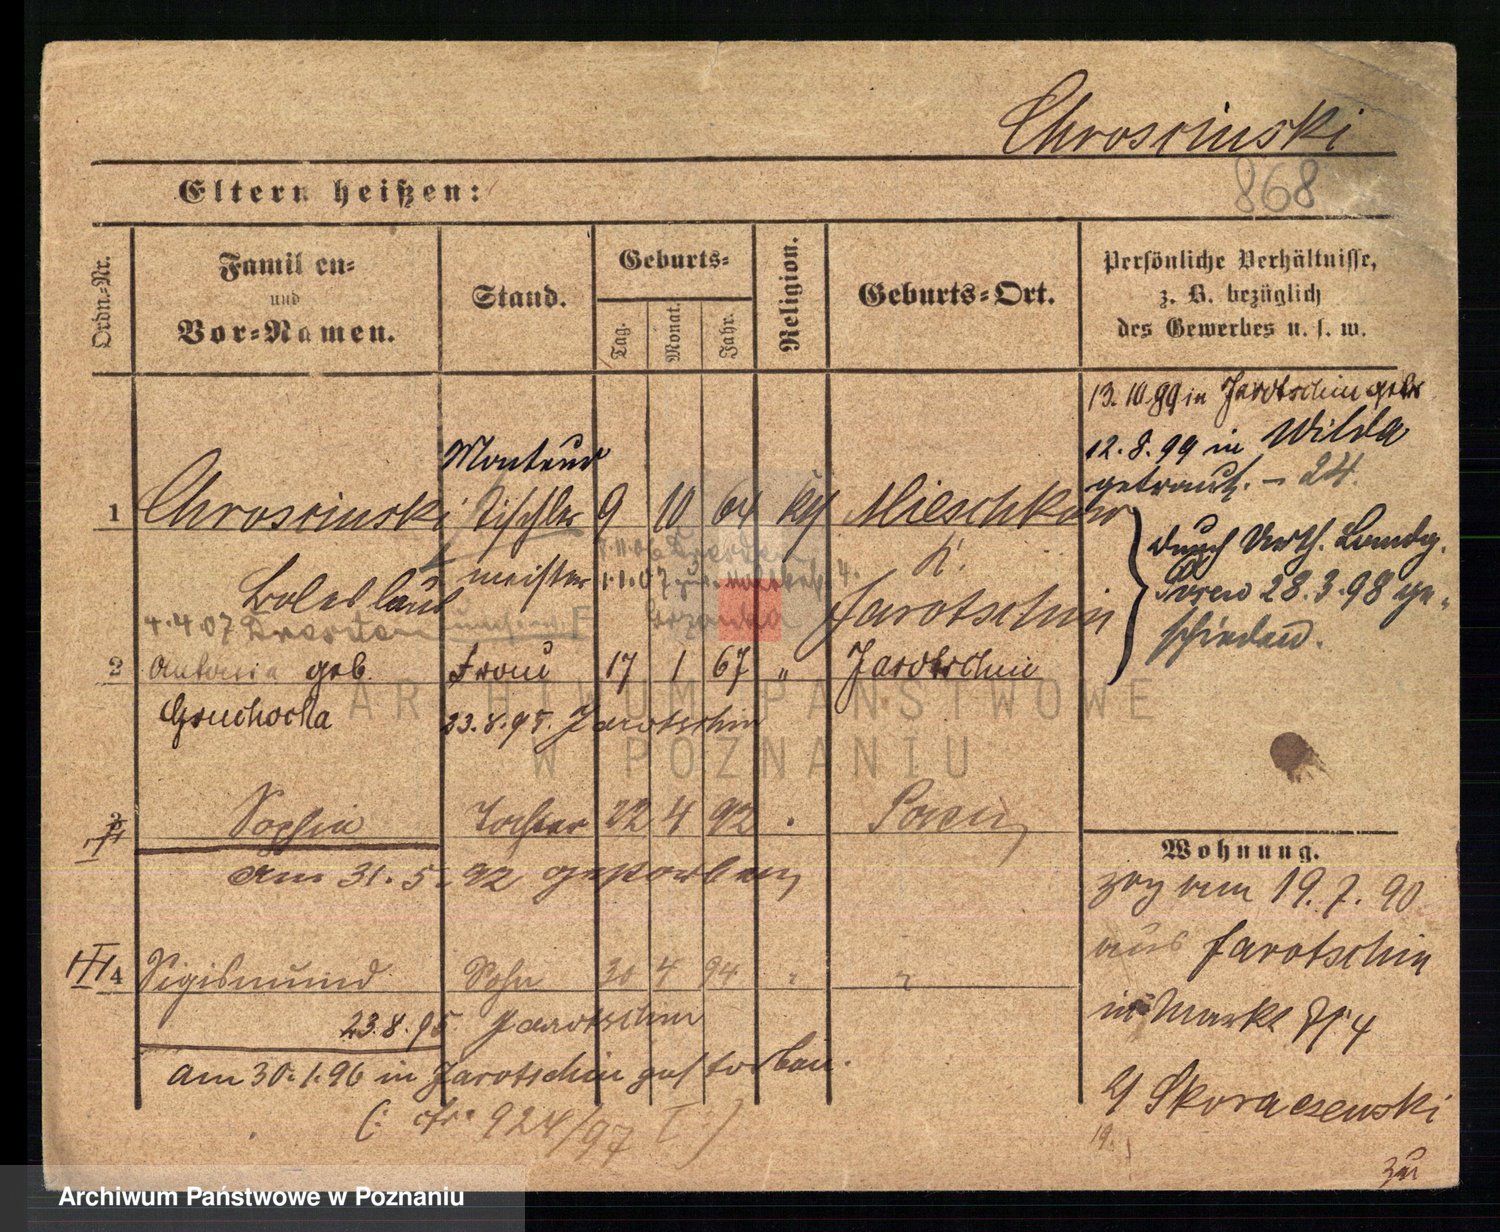 Chroscinski
868
Eltern heißen:
Ordn.-Nr.
Familien-
und
Vor-Namen.
Stand.
Geburts-
Tag.
Monat.
Jahr.
Religion.
Geburts-Ort.
Persönliche Verhältnisse,
z. B. bezüglich
des Gewerbes u. s. w.
13.10.99 in Jarotschin
12.8.99 in Wilda
getraut. - 24.
Monteur
1 Chroscinski Tischler 9 10 64 kth Mieschkow
meister 1.1.07
K.
Boleslaus Jarotschin
4.4.07 Dresden
durch Urth. Landg.
Posen 28.3.98 ge-
schieden.
2 Antonia geb. Frau 17 1 67 " Jarotschin
Gruchocka 23.8.95. Jarotschin
3 Sophia Tochter 22 4 92 Posen
am 31.5.92 gestorben
Wohnung.
zog am 19.7.90
aus Jarotschin
in Markt 74
4 Sigismund Sohn 30 4 94 "
23.8.95. Jarotschin
am 30.1.96 in Jarotschin gestorben.
(: cfr. 924/97 I :)
Skoraczewski
19.
ARCHIWUM PAŃSTWOWE
W POZNANIU
Archiwum Państwowe w Poznaniu